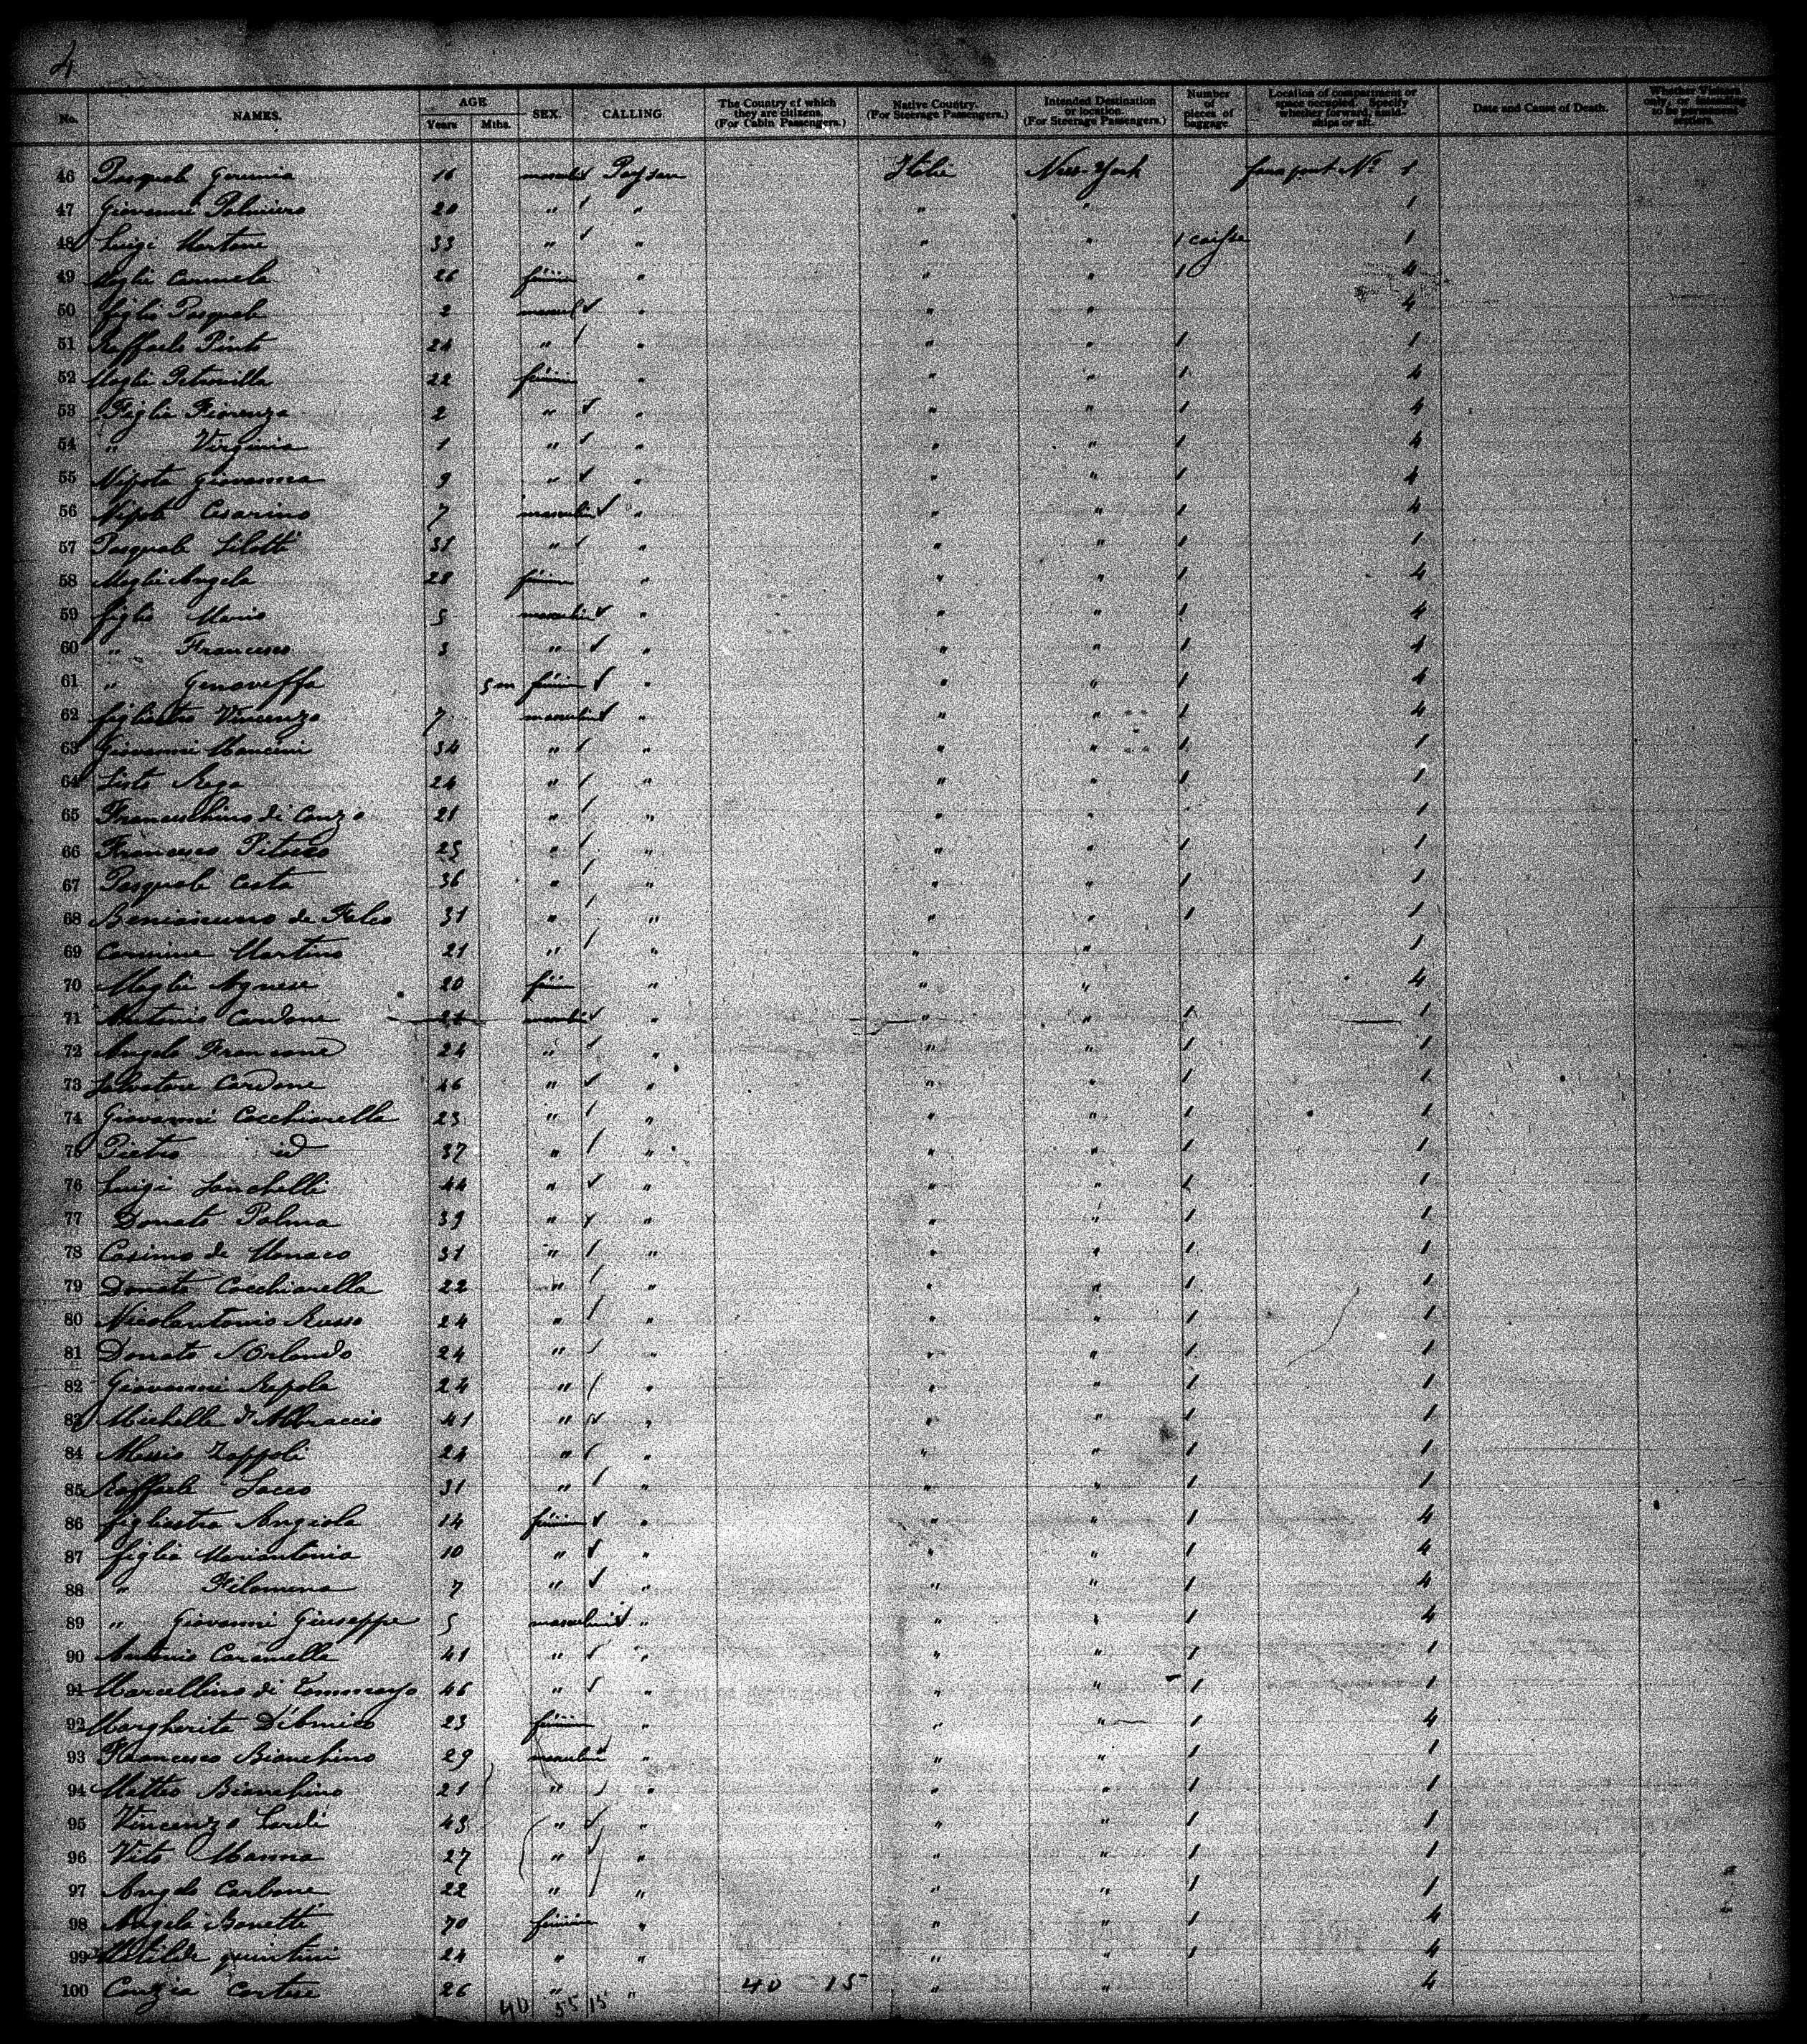 4
No. NAMES. AGE Years Mths. SEX. CALLING. The Country of which they are citizens. (For Cabin Passengers.) Native Country. (For Steerage Passengers.) Intended Destination or location. (For Steerage Passengers.) Number of pieces of baggage. Location of compartment or space occupied. Specify whether forward, amidships or aft. Date and Cause of Death.
46 Pasquale 16 Italie New-York No 1
47 Giovanni Palmiero 20 " " " " 1
48 Luigi 33 " " " " 1 caisse 1
49 Moglie Carmela 26 féminin " " " 1 4
50 figlio Pasquale 2 " " " 4
51 Raffaele Pinto 24 " " " " 1 1
52 Moglie Petronilla 22 féminin " " " 1 4
53 Figlia Fiorenza 2 " " " " 1 4
54 " Virginia 1 " " " " 1 4
55 Nipote Giovanna 9 " " " " 1 4
56 Nipote Cesarino 7 masculin " " " 1 4
57 Pasquale 31 " " " " 1 1
58 Moglie Angela 28 " " " 1 4
59 figlio Mario 5 masculin " " " 1 4
60 " Francesco 3 " " " " 1 4
61 " Genoveffa 5 m féminin " " " 1 4
62 figliastro Vincenzo 7 masculin " " " 1 4
63 Giovanni Mancini 34 " " " " 1 1
64 Sisto Rega 24 " " " " 1 1
65 Franceschino di Conzo 21 " " " " 1
66 Francesco 25 " " " " 1 1
67 Pasquale Cesta 36 " " " " 1 1
68 de Falco 31 " " " " 1 1
69 Carmine Martino 21 " " " " 1
70 Moglie Agnese 20 " " " 4
71 Antonio Cardone masculin " " " 1 1
72 Angelo Francone 24 " " " " 1 1
73 Salvatore Cardone 46 " " " " 1 1
74 Giovanni Cocchiarella 23 " " " " 1 1
75 Pietro id 37 " " " " 1 1
76 Luigi 44 " " " " 1 1
77 Donato Palma 39 " " " " 1 1
78 Cosimo de Monaco 31 " " " " 1 1
79 Donato Cocchiarella 22 " " " " 1 1
80 Nicolantonio Russo 24 " " " " 1 1
81 Donato D'Orlando 24 " " " " 1 1
82 Giovanni Repola 24 " " " " 1 1
83 Michele d'Abbraccio 41 " " " " 1 1
84 Zoppoli 24 " " " " 1 1
85 Raffaele Sacco 31 " " " " 1 1
86 figliastra Angiola 14 féminin " " " 1 4
87 figlia Mariantonia 10 " " " " 1 4
88 " Filomena 7 " " " " 1 4
89 " Giovanni Giuseppe 5 masculin " " " 1 4
90 Antonio Caramella 41 " " " " 1 1
91 Marcellino di Tommaso 46 " " " " 1 1
92 Margherita D'Amico 23 féminin " " " 1 4
93 Francesco Bianchino 29 masculin " " " 1 1
94 Matteo Bianchino 21 " " " " 1 1
95 Vincenzo 43 " " " " 1 1
96 Vito Manna 27 " " " " 1 1
97 Angelo Carbone 22 " " " " 1 1
98 Angela Bonetti 70 féminin " " " 1 4
99 Matilde quintini 24 " " " " 1 4
100 Conzia Cortese 26 " " 40 15 " " 4
40 55 15